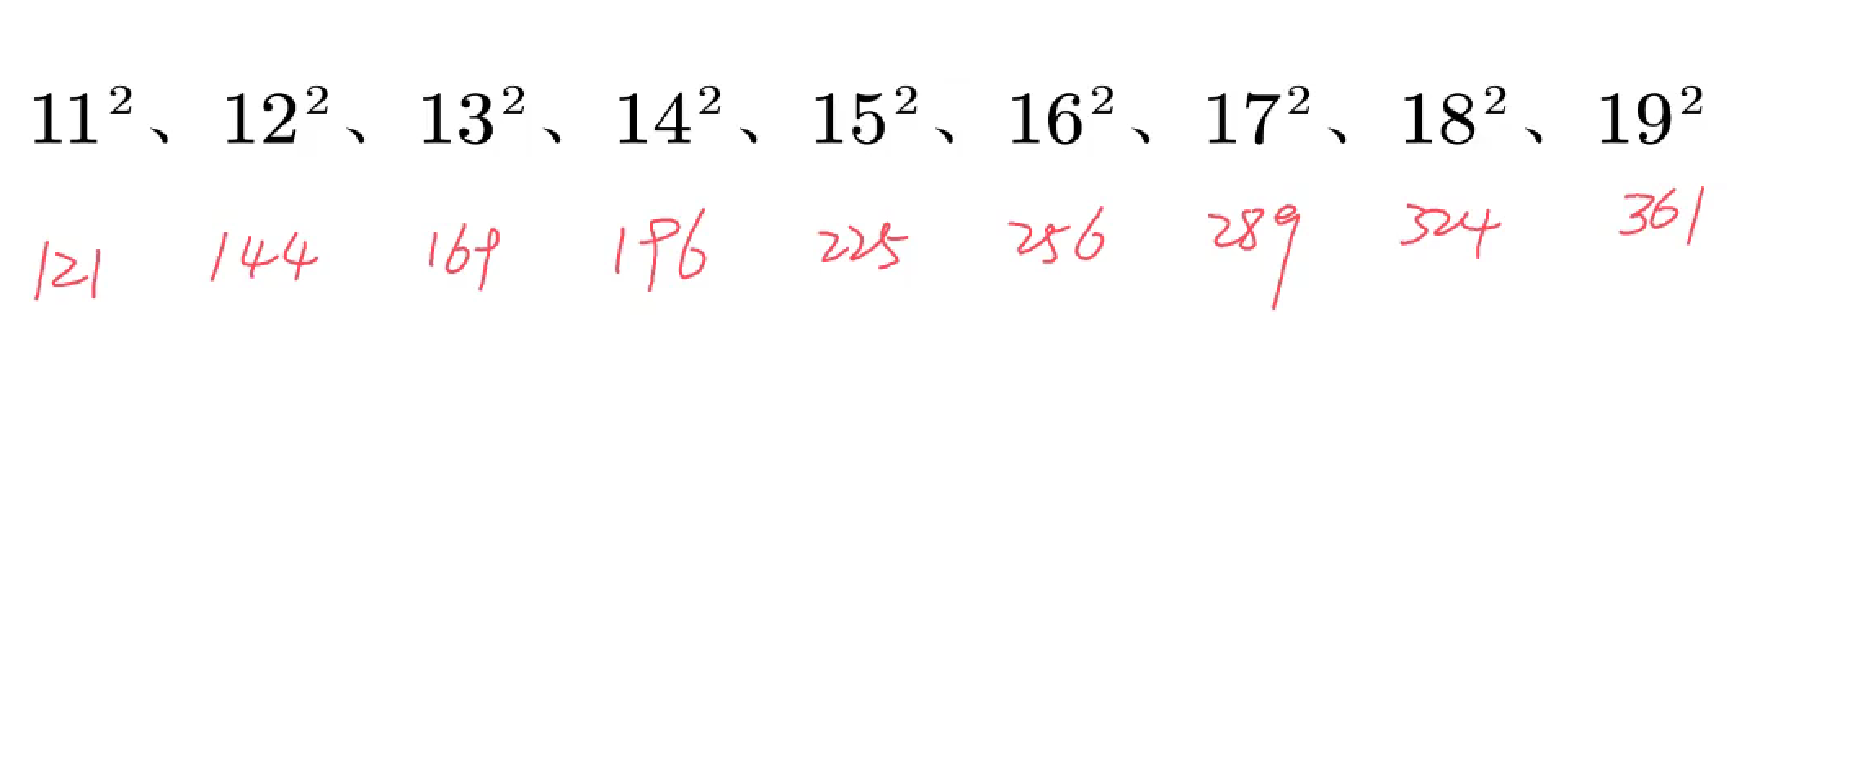 11²、12²、13²、14²、15²、16²、17²、18²、19²
121 144 169 196 225 256 289 324 361